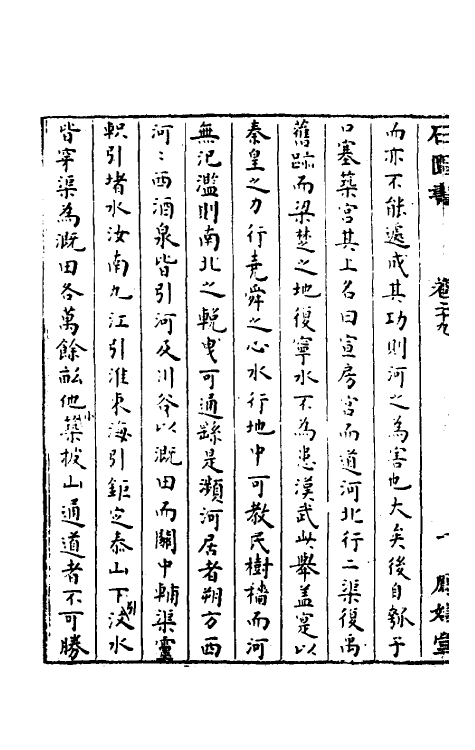 石匱書　卷二十九　一　鳳嬉堂
而亦不能遽成其功則河之為害也大矣後自瓠子
口塞築宮其上名曰宣房宮而道河北行二渠復禹
舊跡而梁楚之地復寧水不為患漢武此舉盖寔以
秦皇之力行堯舜之心水行地中可教民樹檣而河
無汜濫則南北之輓曳可通繇是瀕河居者朔方西
河〻西酒泉皆引河及川谷以溉田而關中輔渠靈
軹引堵水汝南九江引淮東海引鉅定泰山下引汶水
皆穿渠為溉田各萬餘畝他小築披山通道者不可勝